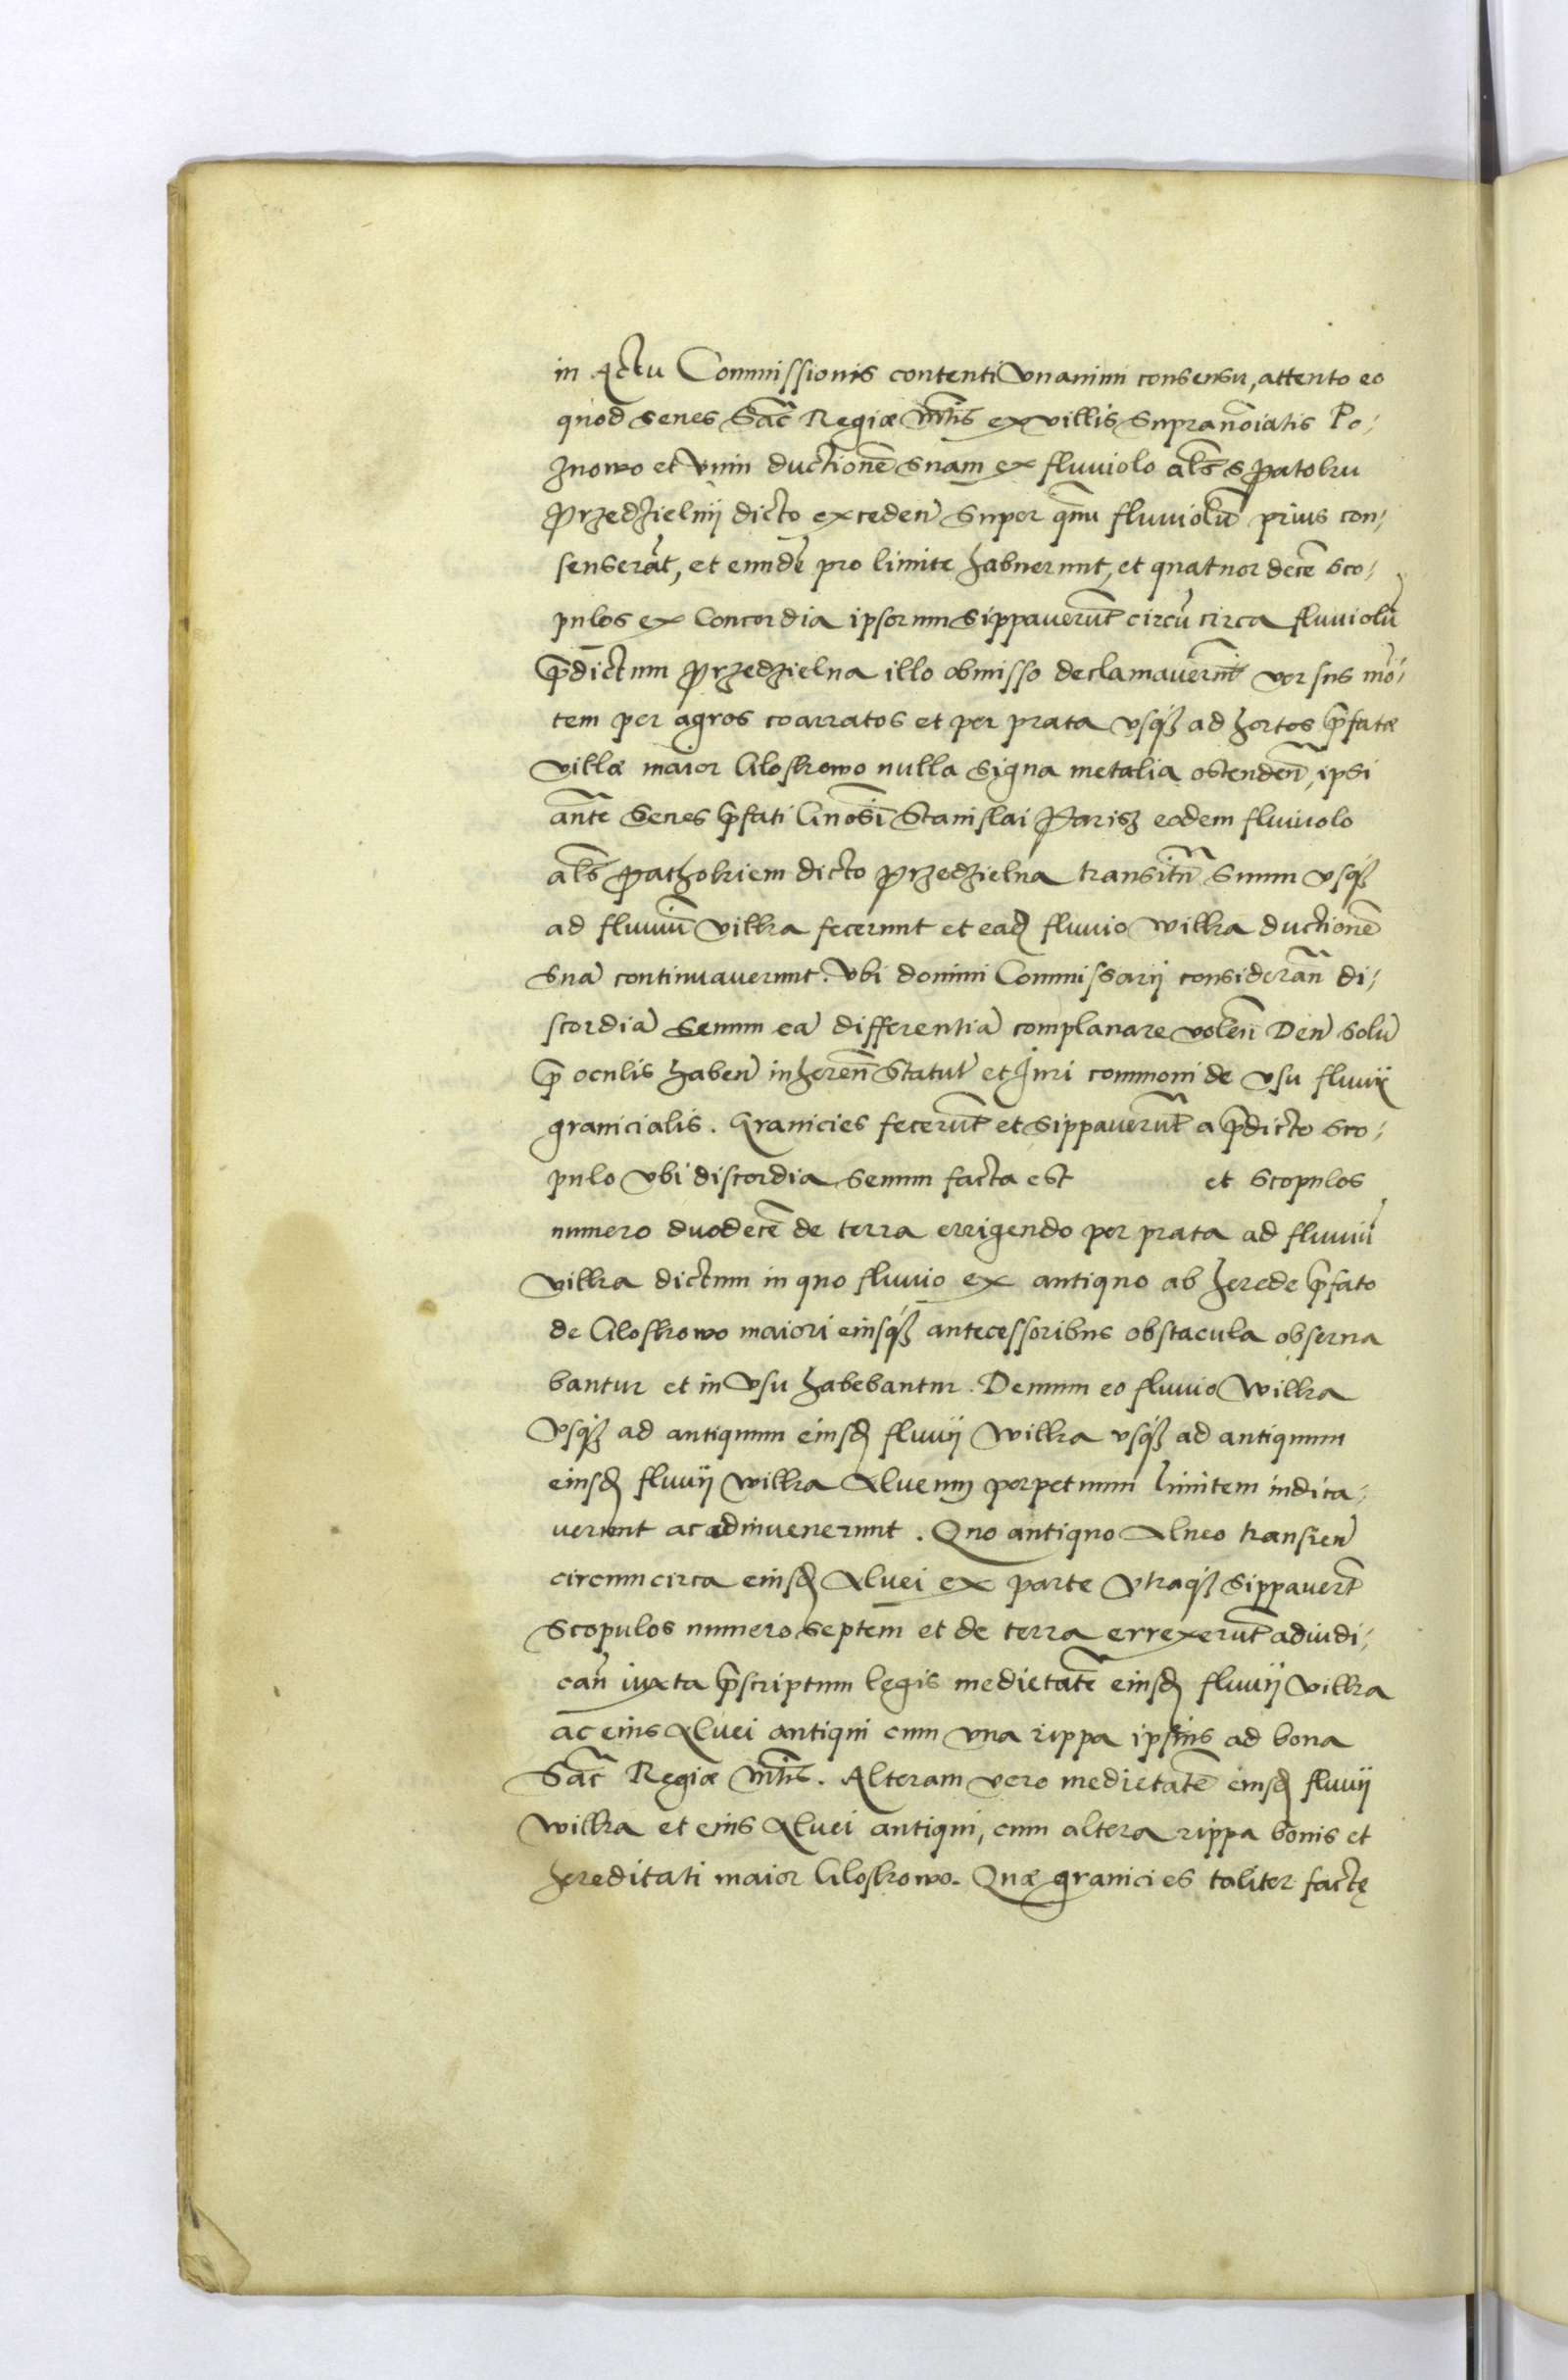 in Actu Commissionis contenti vnanimi consensu, attento eo
quod senes Sac̃ Regiæ Mtis ex villis Supranõiatis Po-
znowo et Vnin ductionẽ suam ex fluuiolo als̃ s patoku
Przedzielnij dicto exceden̄ Super qnū fluuiolū prius con-
senserãt, et eundẽ pro limite habuerunt, et quatuor decẽ sco-
pulos ex Concordia ipsorum sippauerũt circũ circa fluuiolũ
p̄dictum Przedzielna illo obmisso declamauerũt versus mõ-
tem per agros coarratos et per prata vsq3 ad hortos p̄fatæ
villæ maior Gloskowo nulla signa metalia ostenden̄, ipsi
antẽ Senes p̄fati Gnosĩ Stanislai Parisz eodem fluuiolo
als̃ Pathokiem dicto Przedzielna transitũ suum vsq3
ad fluuiũ vilka fecerunt et eaď fluuio wilka ductionẽ
suã continuauerunt. Vbi domini Commissarij considerañ di-
scordiã senum eã differentiã complanare volen̄ Deũ Solũ
p̄ oculis haben̄ inheren̄ Statut̃ et Juri commoni de vsu fluuij
granicialis. Granicies fecerũt et sippauerũt a p̄dicto sco-
pulo vbi discordia senum facta est et scopulos
numero duodecẽ de terra errigendo per prata ad fluuiũ
vilka dictum in quo fluuio ex antiquo ab herede p̄fato
de Gloskowo maiori eiusq3 antecessoribus obstacula obserua
bantur et in vsu habebantur. Demum eo fluuio Wilka
Vsq3 ad antiquum eiusď fluuij Wilka vsq3 ad antiquum
eiusď fluuij wilka Alueum perpetuum limitem indica-
uerunt ac adinuenerunt. Quo antiquo Alueo transien̄
circumcirca eiusď Aluei ex parte Vtraq3 sippauerт̃
Scopulos numero septem̄ et de terra errexerũt adiudi-
can̄ iuxta p̄scriptum legis medietatẽ eiusď fluuij vilka
ac eius Aluei antiqui cum vna rippa ipsius ad bona
Sac̃ Regiæ Mtis. Alteram vero medietatẽ eiusď fluuij
wilka et eius Aluei antiqui, cum altera rippa bonis et
hereditati maior Gloskowo. Quæ granicies taliter factę